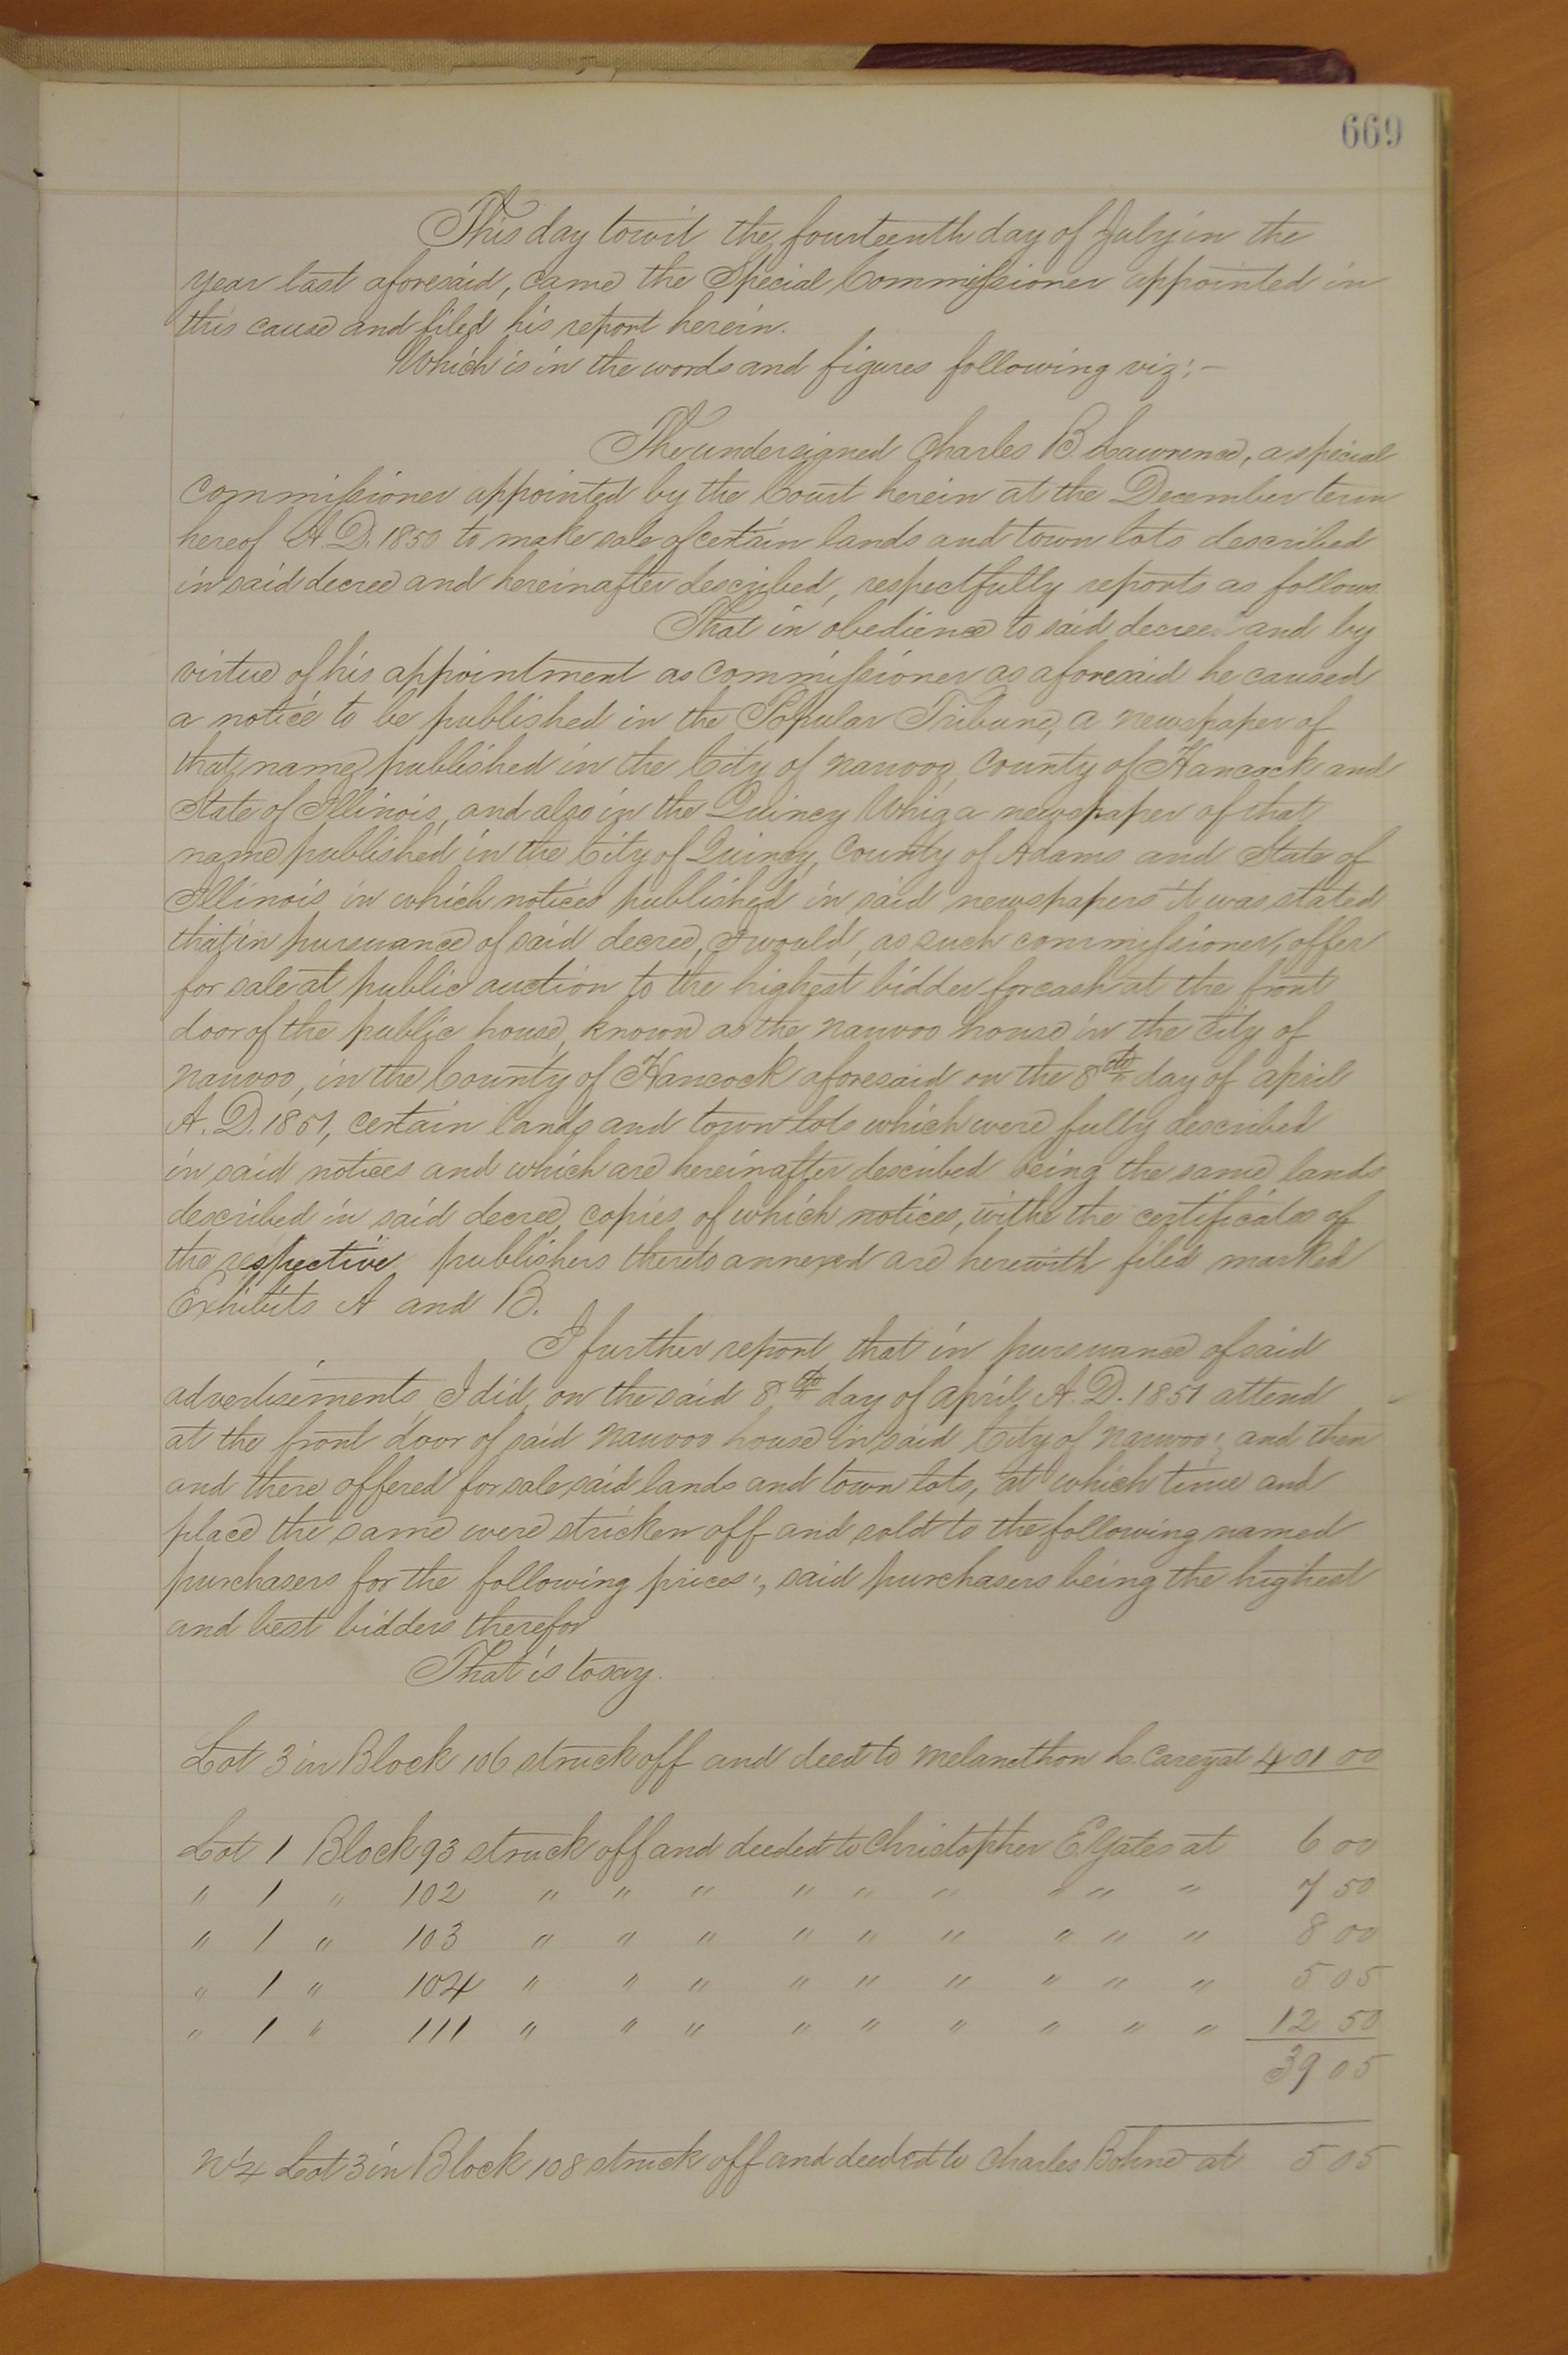 669
This day towit the fourteenth day of July in the
year last aforesaid, came the Special Commissioner appointed in
this cause and filed his report herein.
Which is in the words and figures following viz;—
The undersigned Charles B. Lawrence, a special
commissioner appointed by the Court herein at the December term
hereof A.D. 1850 to make sale of certain lands and town lots described
in said decree and hereinafter described, respectfully reports as follows.
That in obedience to said decree and by
virtue of his appointment as commissioner as aforesaid he caused
a notice to be published in the Popular Tribune, a newspaper of
that name published in the City of Nauvoo, County of Hancock and
State of Illinois, and also in the Quincy Whig a newspaper of that
name published in the City of Quincy, County of Adams and State of
Illinois in which notices published in said newspapers it was stated
that in pursuance of said decree, I would, as such commissioner, offer
for sale at public auction to the highest bidder for cash at the front
door of the public house, known as the Nauvoo house in the City of
Nauvoo, in the County of Hancock aforesaid on the 8th day of April
A.D. 1851, certain lands and town lots which were fully described
in said notices and which are hereinafter described being the same lands
described in said decree, copies of which notices, withe the certificates of
the respective publishers thereto annexed are herewith filed marked
Exhibits A and B.
I further report that in pursuance of said
advertisements, I did, on the said 8th day of April A.D. 1851 attend
at the front door of said Nauvoo house in said City of Nauvoo; and then
and there offered for sale said lands and town lots, at which time and
place the same were stricken off and sold to the following named
purchasers for the following prices; said purchasers being the highest
and best bidders therefor
That is to say.
Lot 3 in Block 106 struck off and deed to Melancthon L. Carey at 401 00
Lot 1 Block 93 struck off and deeded to Christopher E. Yates at 6 00
" 1 " 102 " " " " " " " " " 7 50
" 1 " 103 " " " " " " " " " 8 00
" 1 " 104 " " " " " " " " " 5 05
" 1 " 111 " " " " " " " " " 12 50
39 05
Lot 3 in Block 108 struck off and deeded to Charles Bohne at 5 05